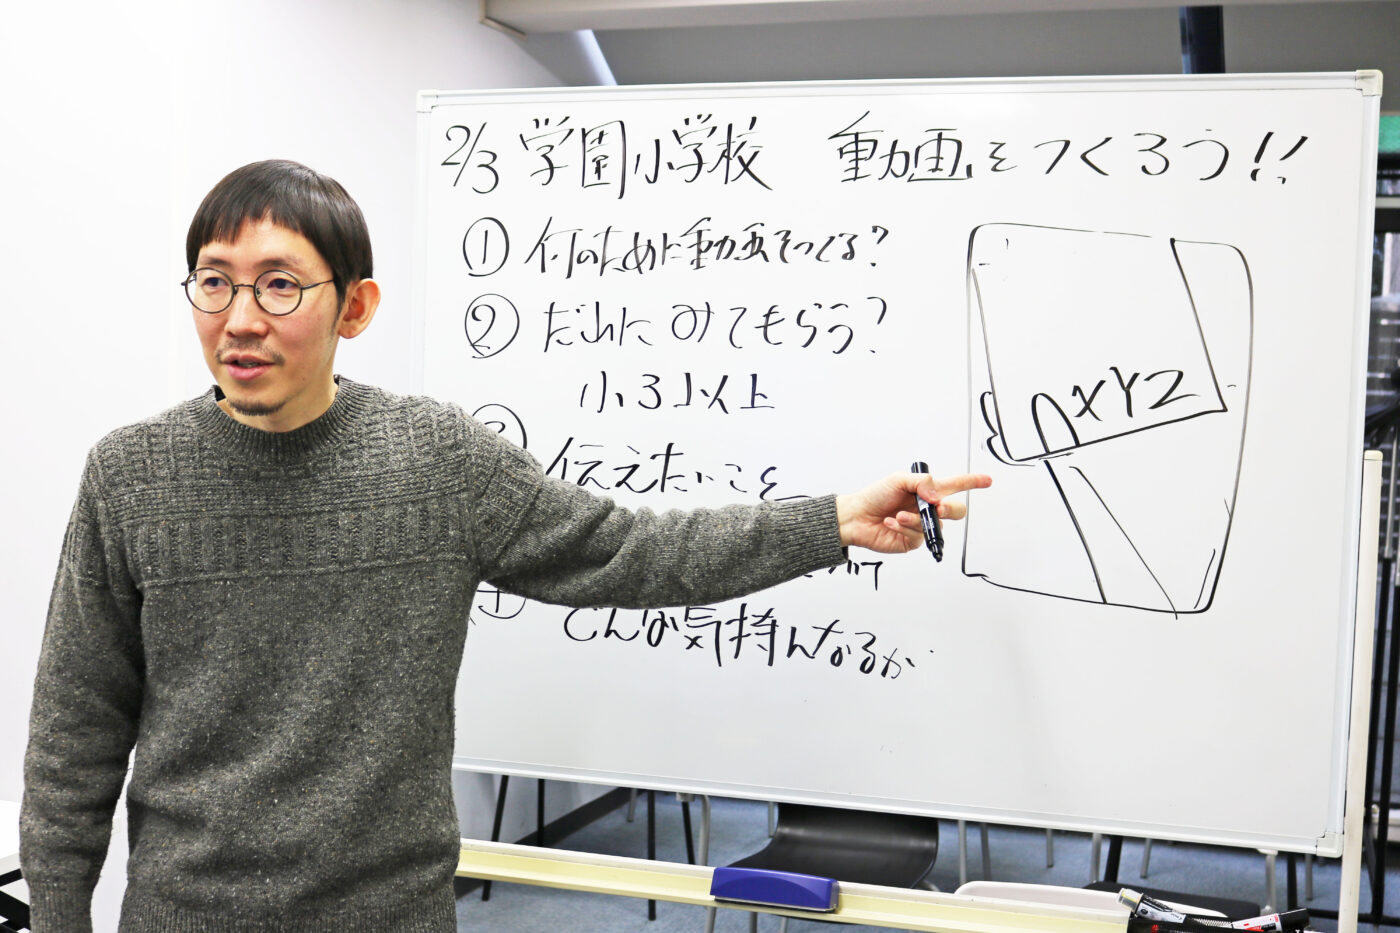 2/3 学園小学校 動画をつくろう!!
① 何のために動画をつくる?
② だれにみてもらう?
小3以上
伝えたいこと
どんな気持んなるか
XYZ